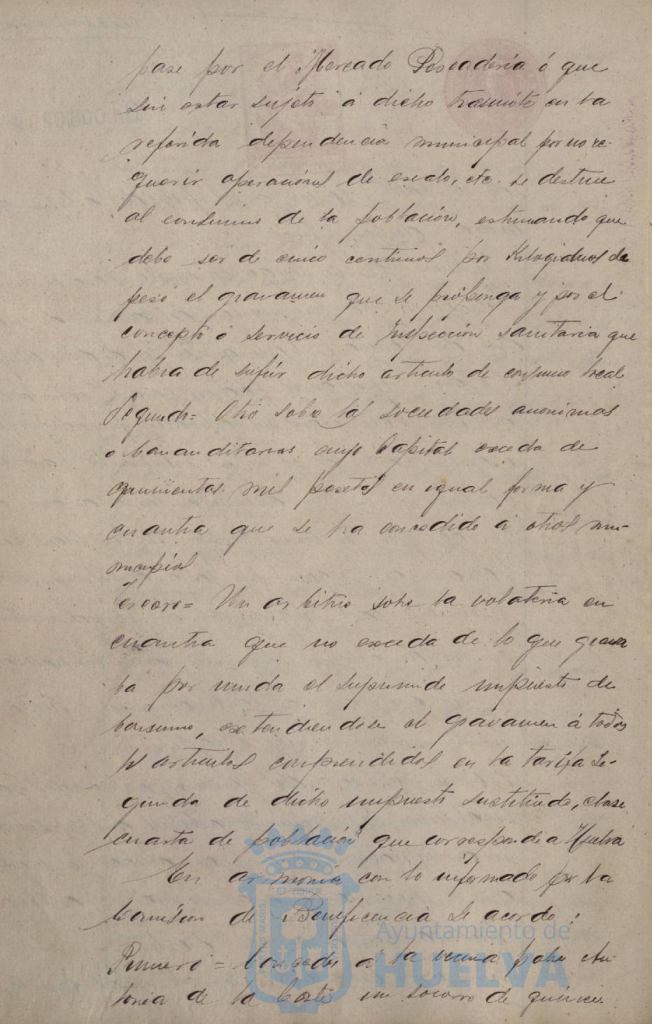 pase por el Mercado Pescaderia ó que
sin estar sujeto á dicho trasunto en la
referida dependencia municipal por no re-
querir operaciones de escala, etc. se destine
al consumo de la población, estimando que
debe ser de cinco centimos por Kilogramos de
peso el gravamen que se proponga y por el
concepto ó servicio de Inspección sanitaria que
habra de sufrir dicho articulo de consumo local
Segundo= Otro sobre las sociedades anonimas
o Comanditarias cuyo Capital exceda de
quinientas mil pesetas en igual forma y
cuantia que se ha concedido á otros mu-
nicipios
Tercero= Un arbitrio sobre la volateria en
cuantia que no exceda de lo que grava
ba por unidad el suprimido impuesto de
Consumo, extendiendose el gravamen á todos
los articulos comprendidos en la tarifa se-
gunda de dicho impuesto sustituido, clase
cuarta de población que corresponde a Huelva
En armonia con lo informado por la
Comision de Beneficencia se acordo:
Primero= Conceder á la vecina pobre An-
tonia de la Corte un socorro de quince
Ayuntamiento de
HUELVA